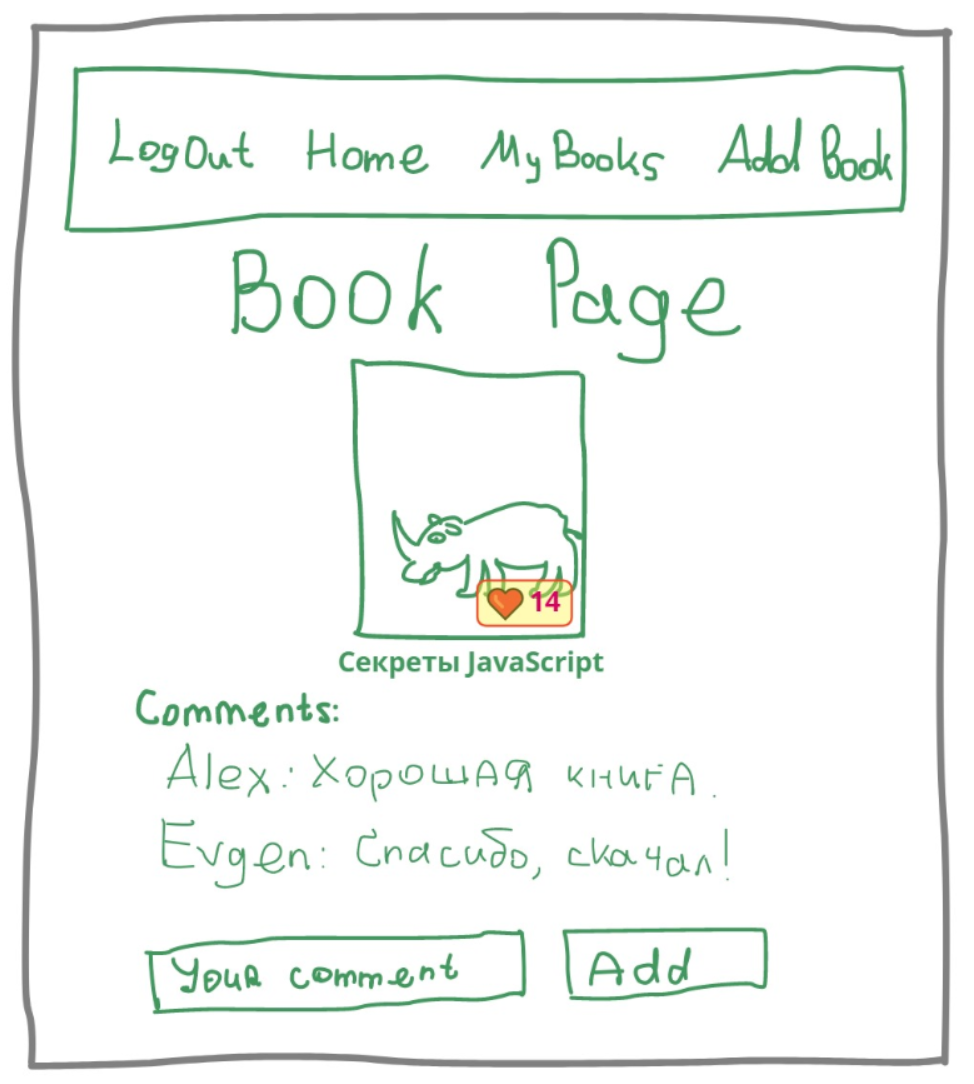 LogOut Home My Books Add Book
Book Page
14
Секреты JavaScript
Comments:
Alex: Хорошая книга.
Evgen: Спасибо, скачал!
Your comment Add